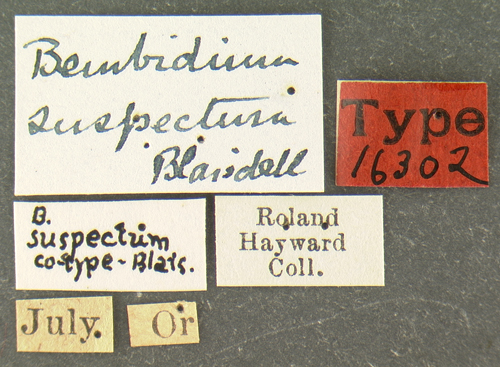 Bembidium
suspectum
Blaisdell
Type
16302
B.
suspectum
cotype-Blais.
Roland
Hayward
Coll.
July.
Or